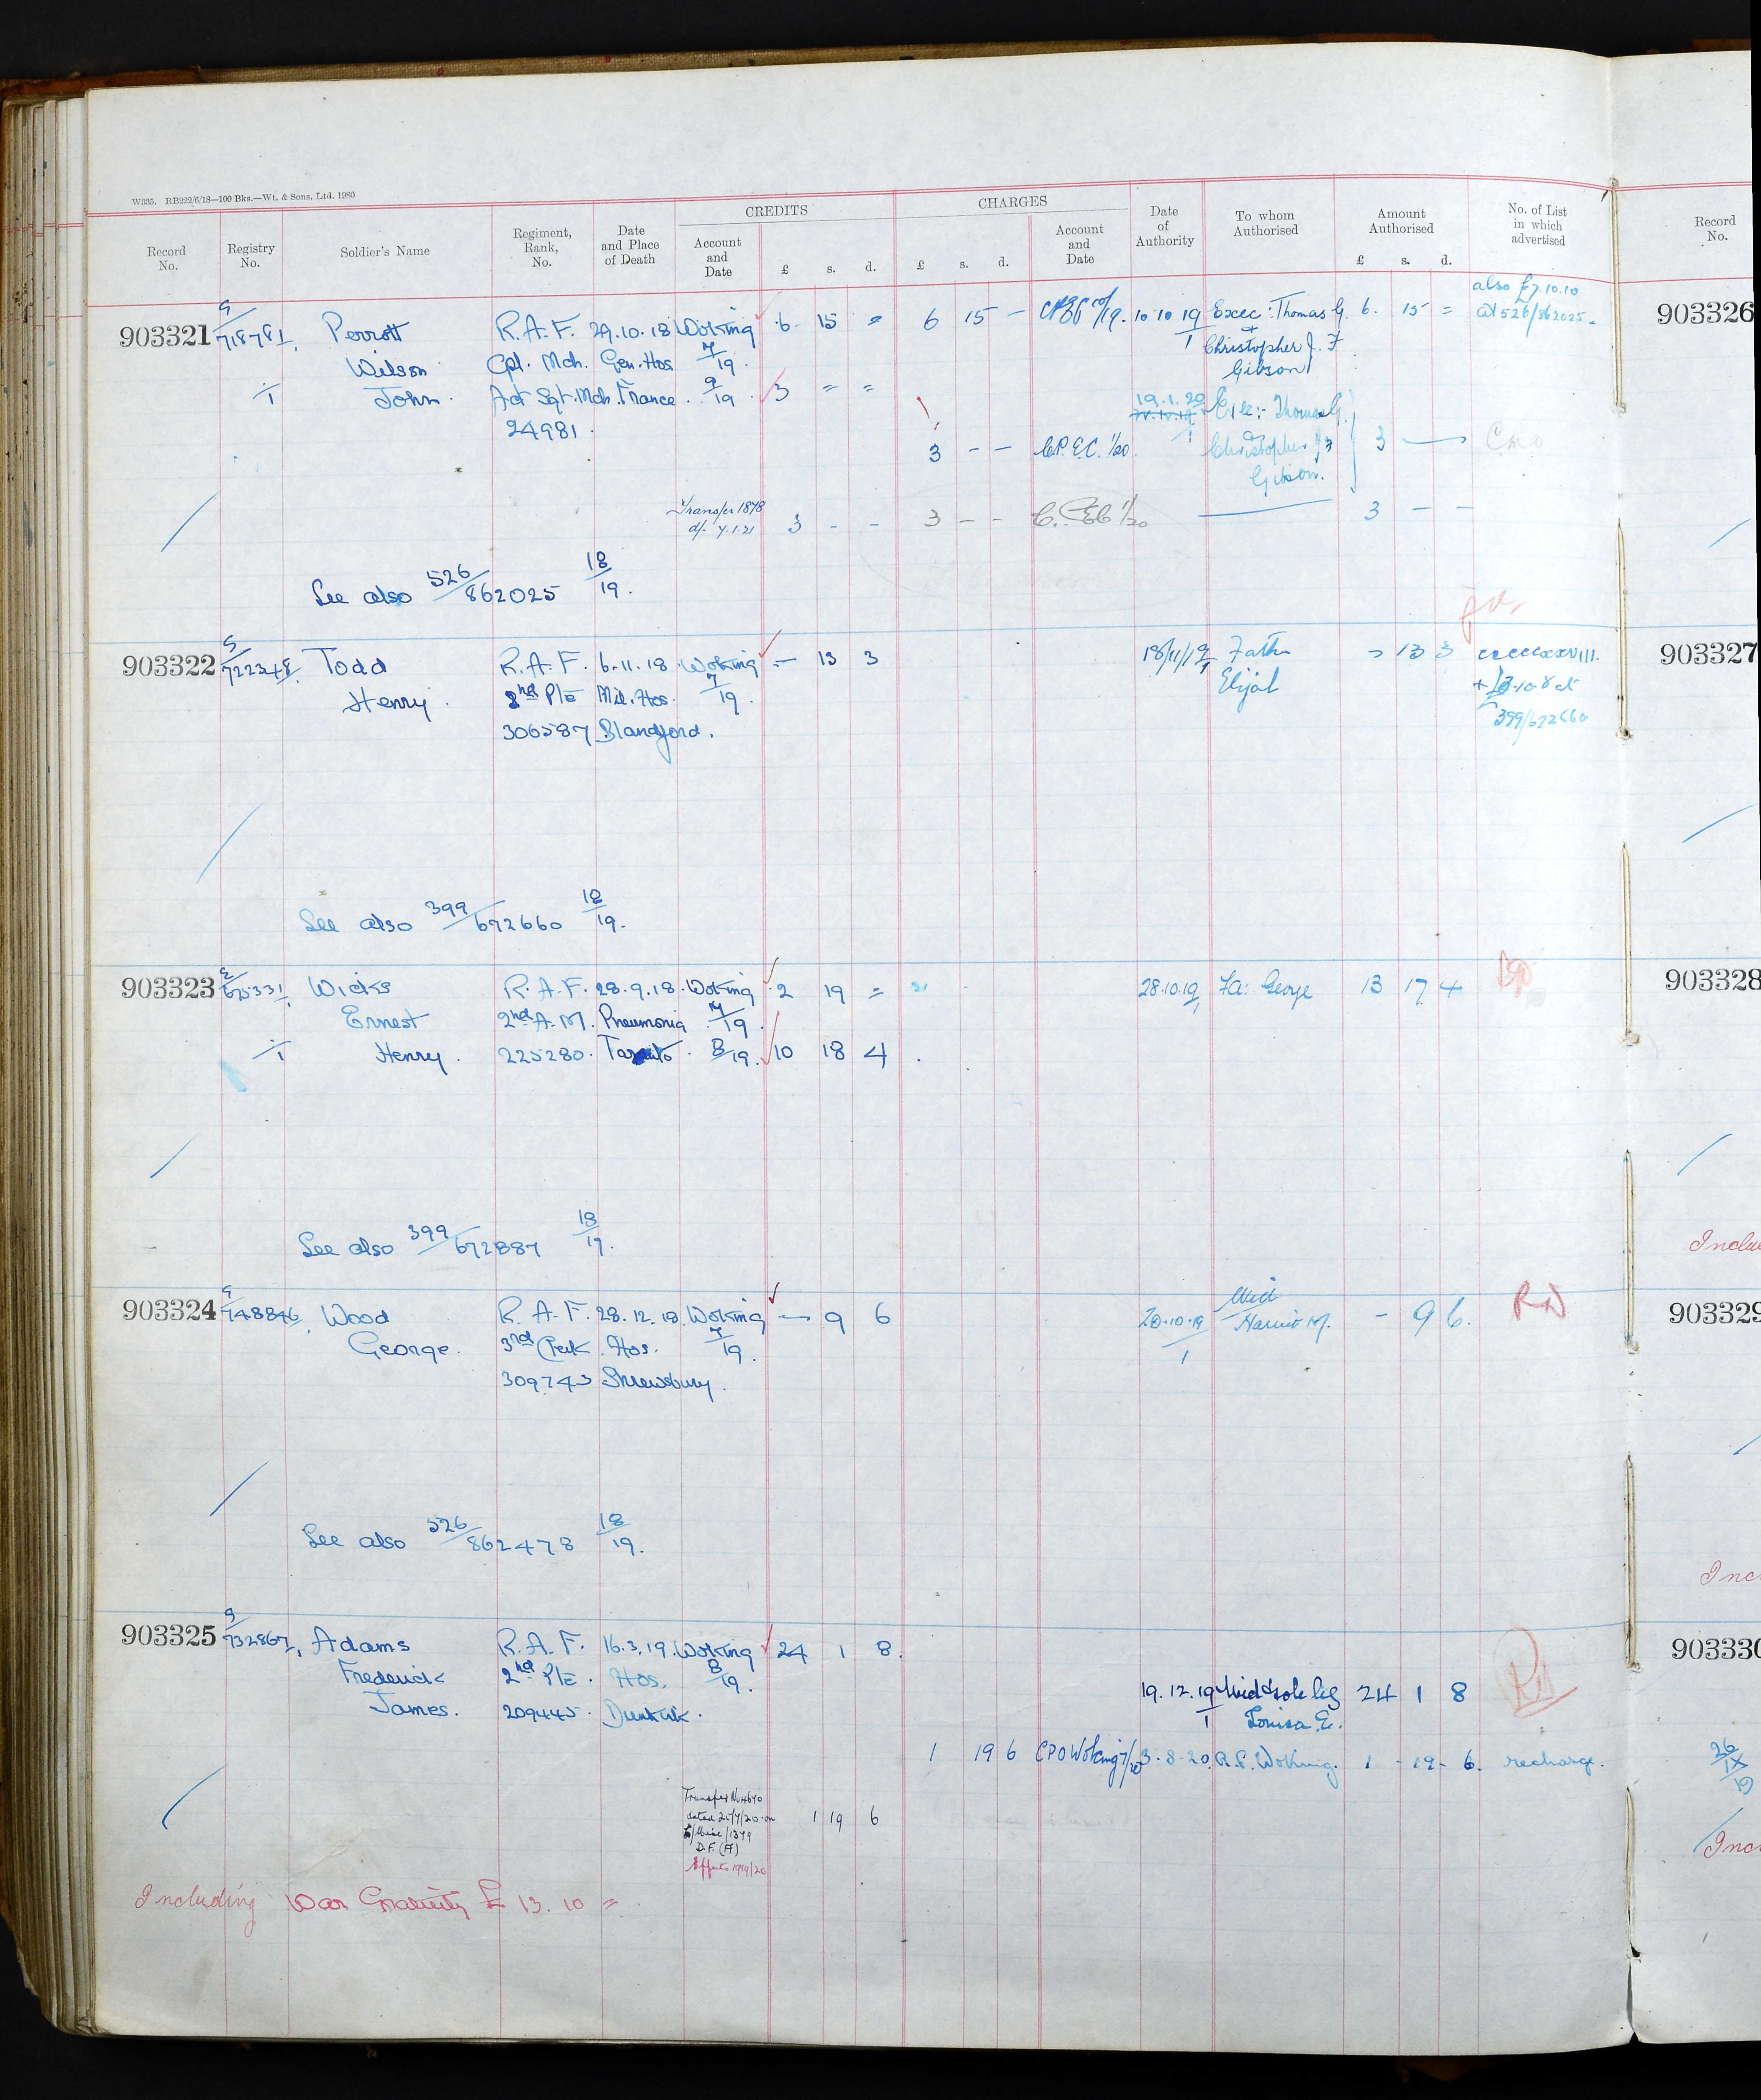 W335. RB222/6/18—100 Bks.—Wt. & Sons, Ltd. 1980
CREDITS CHARGES
Record No. Registry No. Soldier's Name Regiment, Rank, No. Date and Place of Death Account and Date £ s. d. £ s. d. Account and Date Date of Authority To whom Authorised Amount Authorised £ s. d. No. of List in which advertised Record No.
also £7.10.10
903321 9/718781 Perrott R.A.F. 29.10.18 Woking 6 15 = 6 15 — 10 10 19 Exec: Thomas G. 6. 15 = at 526/862025. 903326
Wilson Cpl. Mch. Gen. Hos 7/19. 1 & Christopher J. F
Gibson
1 John. Act Sgt. Mch. France. 9/19. 3 = =
24981.
19.1.20 Exec:- Thomas G.
1 &
3 - - C.P.E.C. 1/20 Christopher J F 3 —
Gibson.
Transfer 1878
d/- 7.1.21 3 - - 3 - - 1/20 3 - -
See also 526/862025 18/19.
903322 9/722348 Todd R.A.F. 6.11.18. Woking — 13 3 18/11/19 Father - 13 3 ccccccxxviii. 903327
Henry. P/E Mil. Hos. 7/19. 1 Elijah + £3.10.8 at
306587 Blandford. 399/672660
See also 399/672660 18/19.
903323 9/625331 Wicks R.A.F. 28.9.18. Woking 2 19 = 28.10.19 Fa: George 13 17 4 903328
Ernest 2nd A.M. Pneumonia 7/19. 1
1 Henry. 225280. Taranto. 8/19. 10 18 4
See also 399/672887 18/19.
Inclu
903324 9/748846 Wood R.A.F. 28.12.18 Woking — 9 6 20.10.19 Wid Harriet M. - 9 6. RD 903329
George. 3rd Clerk. Hos. 7/19. 1
309743 Shrewsbury.
See also 526/862478 18/19.
Inc
903325 9/732867 Adams R.A.F. 16.3.19. Woking 24 1 8. 903330
Frederick 2nd P/E. Hos. 8/19. 19.12.19 Wid & sole leg 24 1 8
James. 209445. Dunkirk. 1 Louisa E.
1 19 6 CPO Woking 7/20 3.8.20. R.P. Woking. 1 - 19 - 6. recharge. 26/IX/19
Transfer No 4640
dated 21/7/20 on 1 19 6
1379
D.F. (A)
Effects 1919/20
Inc
Including War Gratuity £ 13. 10 =